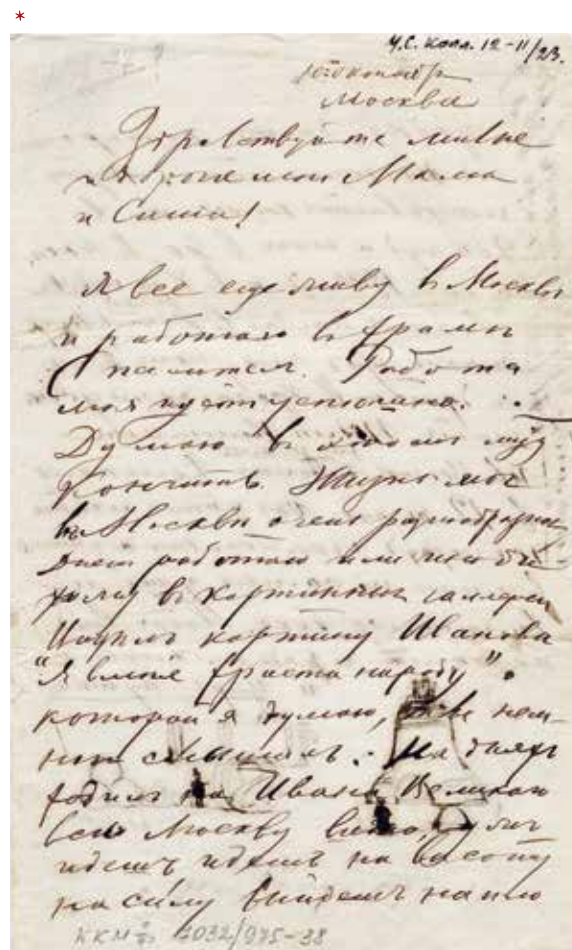 *
Ч.С. Колл. 12-11/23.
10 октябр
Москва
Здравствуйте милые
и дорогие мои Мама
и Саша!
Я все еще живу в Москвы
и работаю в храмы
Спасителя. Работа
моя идет успешно.
Думаю в
кончить. Жизнь моя
в Москвы очень разнообразна
Днем работаю или иногда
хожу в картинныя галереи
Изучил картину Иванова
"Явление Христа народу".
которой я думаю, и вы нем-
ного слышали. На днях
ходил на Ивана Великаго
всю Москву видно,
идешь идешь на высоту
на силу выйдешь на
ККМ 7032/975-38